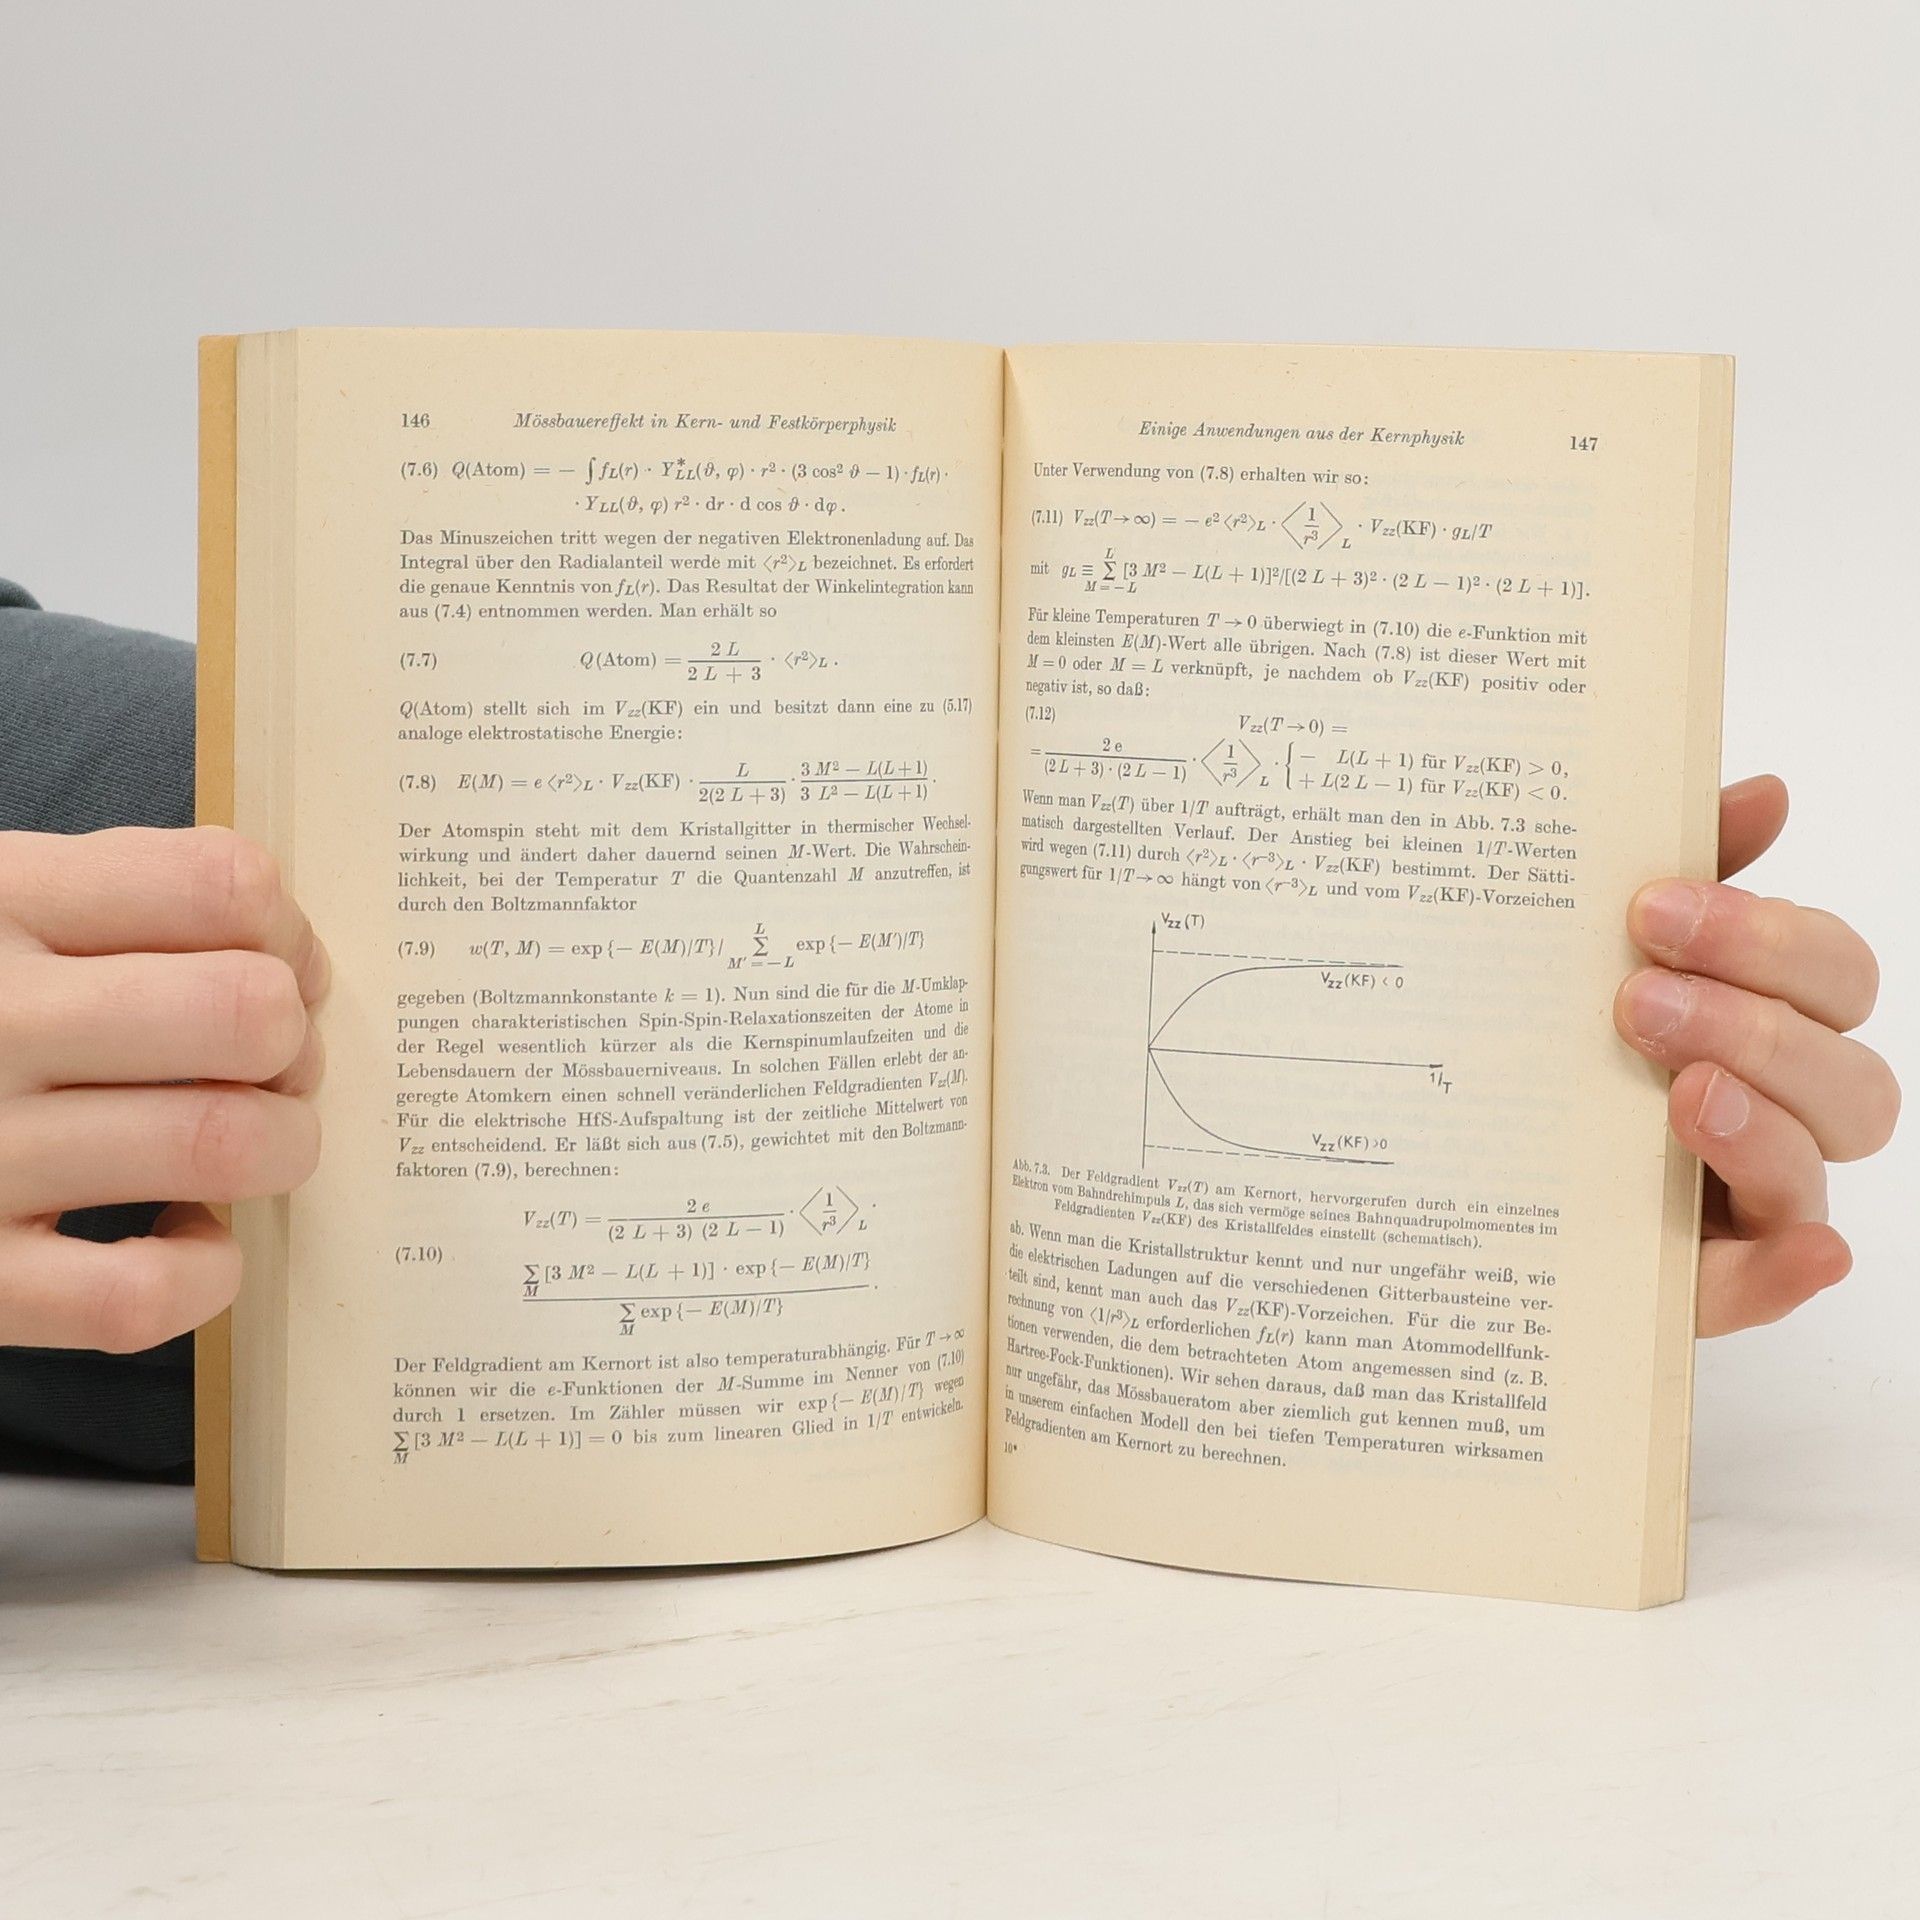 146 Mössbauereffekt in Kern- und Festkörperphysik
(7.6) Q(Atom) = − ∫ f_L(r) · Y*_LL(ϑ, φ) · r² · (3 cos² ϑ − 1) · f_L(r) ·
· Y_LL(ϑ, φ) r² · dr · d cos ϑ · dφ .
Das Minuszeichen tritt wegen der negativen Elektronenladung auf. Das
Integral über den Radialanteil werde mit ⟨r²⟩_L bezeichnet. Es erfordert
die genaue Kenntnis von f_L(r). Das Resultat der Winkelintegration kann
aus (7.4) entnommen werden. Man erhält so
(7.7) Q(Atom) = 2 L / (2 L + 3) · ⟨r²⟩_L .
Q(Atom) stellt sich im V_zz(KF) ein und besitzt dann eine zu (5.17)
analoge elektrostatische Energie:
(7.8) E(M) = e ⟨r²⟩_L · V_zz(KF) · L / 2(2 L + 3) · 3 M² − L(L + 1) / 3 L² − L(L + 1) .
Der Atomspin steht mit dem Kristallgitter in thermischer Wechsel-
wirkung und ändert daher dauernd seinen M-Wert. Die Wahrschein-
lichkeit, bei der Temperatur T die Quantenzahl M anzutreffen, ist
durch den Boltzmannfaktor
(7.9) w(T, M) = exp {− E(M)/T} / Σ_{M′ = −L}^{L} exp {− E(M′)/T}
gegeben (Boltzmannkonstante k = 1). Nun sind die für die M-Umklap-
pungen charakteristischen Spin-Spin-Relaxationszeiten der Atome in
der Regel wesentlich kürzer als die Kernspinumlaufzeiten und die
Lebensdauern der Mössbauerniveaus. In solchen Fällen erlebt der an-
geregte Atomkern einen schnell veränderlichen Feldgradienten V_zz(M).
Für die elektrische HfS-Aufspaltung ist der zeitliche Mittelwert von
V_zz entscheidend. Er läßt sich aus (7.5), gewichtet mit den Boltzmann-
faktoren (7.9), berechnen:
V_zz(T) = 2 e / (2 L + 3) (2 L − 1) · ⟨1/r³⟩_L ·
(7.10) Σ_M [3 M² − L(L + 1)] · exp {− E(M)/T} / Σ_M exp {− E(M)/T} .
Der Feldgradient am Kernort ist also temperaturabhängig. Für T → ∞
können wir die e-Funktionen der M-Summe im Nenner von (7.10)
durch 1 ersetzen. Im Zähler müssen wir exp {− E(M)/T} wegen
Σ_M [3 M² − L(L + 1)] = 0 bis zum linearen Glied in 1/T entwickeln.
Einige Anwendungen aus der Kernphysik 147
Unter Verwendung von (7.8) erhalten wir so:
(7.11) V_zz(T → ∞) = − e² ⟨r²⟩_L · ⟨1/r³⟩_L · V_zz(KF) · g_L/T
mit g_L ≡ Σ_{M = −L}^{L} [3 M² − L(L + 1)]²/[(2 L + 3)² · (2 L − 1)² · (2 L + 1)].
Für kleine Temperaturen T → 0 überwiegt in (7.10) die e-Funktion mit
dem kleinsten E(M)-Wert alle übrigen. Nach (7.8) ist dieser Wert mit
M = 0 oder M = L verknüpft, je nachdem ob V_zz(KF) positiv oder
negativ ist, so daß:
(7.12) V_zz(T → 0) =
= 2 e / (2 L + 3) · (2 L − 1) · ⟨1/r³⟩_L · { − L(L + 1) für V_zz(KF) > 0,
+ L(2 L − 1) für V_zz(KF) < 0.
Wenn man V_zz(T) über 1/T aufträgt, erhält man den in Abb. 7.3 sche-
matisch dargestellten Verlauf. Der Anstieg bei kleinen 1/T-Werten
wird wegen (7.11) durch ⟨r²⟩_L · ⟨r⁻³⟩_L · V_zz(KF) bestimmt. Der Sätti-
gungswert für 1/T → ∞ hängt von ⟨r⁻³⟩_L und vom V_zz(KF)-Vorzeichen
V_zz (T)
V_zz (KF) < 0
1/T
V_zz (KF) > 0
Abb. 7.3. Der Feldgradient V_zz(T) am Kernort, hervorgerufen durch ein einzelnes
Elektron vom Bahndrehimpuls L, das sich vermöge seines Bahnquadrupolmomentes im
Feldgradienten V_zz(KF) des Kristallfeldes einstellt (schematisch).
ab. Wenn man die Kristallstruktur kennt und nur ungefähr weiß, wie
die elektrischen Ladungen auf die verschiedenen Gitterbausteine ver-
teilt sind, kennt man auch das V_zz(KF)-Vorzeichen. Für die zur Be-
rechnung von ⟨1/r³⟩_L erforderlichen f_L(r) kann man Atommodellfunk-
tionen verwenden, die dem betrachteten Atom angemessen sind (z. B.
Hartree-Fock-Funktionen). Wir sehen daraus, daß man das Kristallfeld
nur ungefähr, das Mössbaueratom aber ziemlich gut kennen muß, um
in unserem einfachen Modell den bei tiefen Temperaturen wirksamen
Feldgradienten am Kernort zu berechnen.
10*